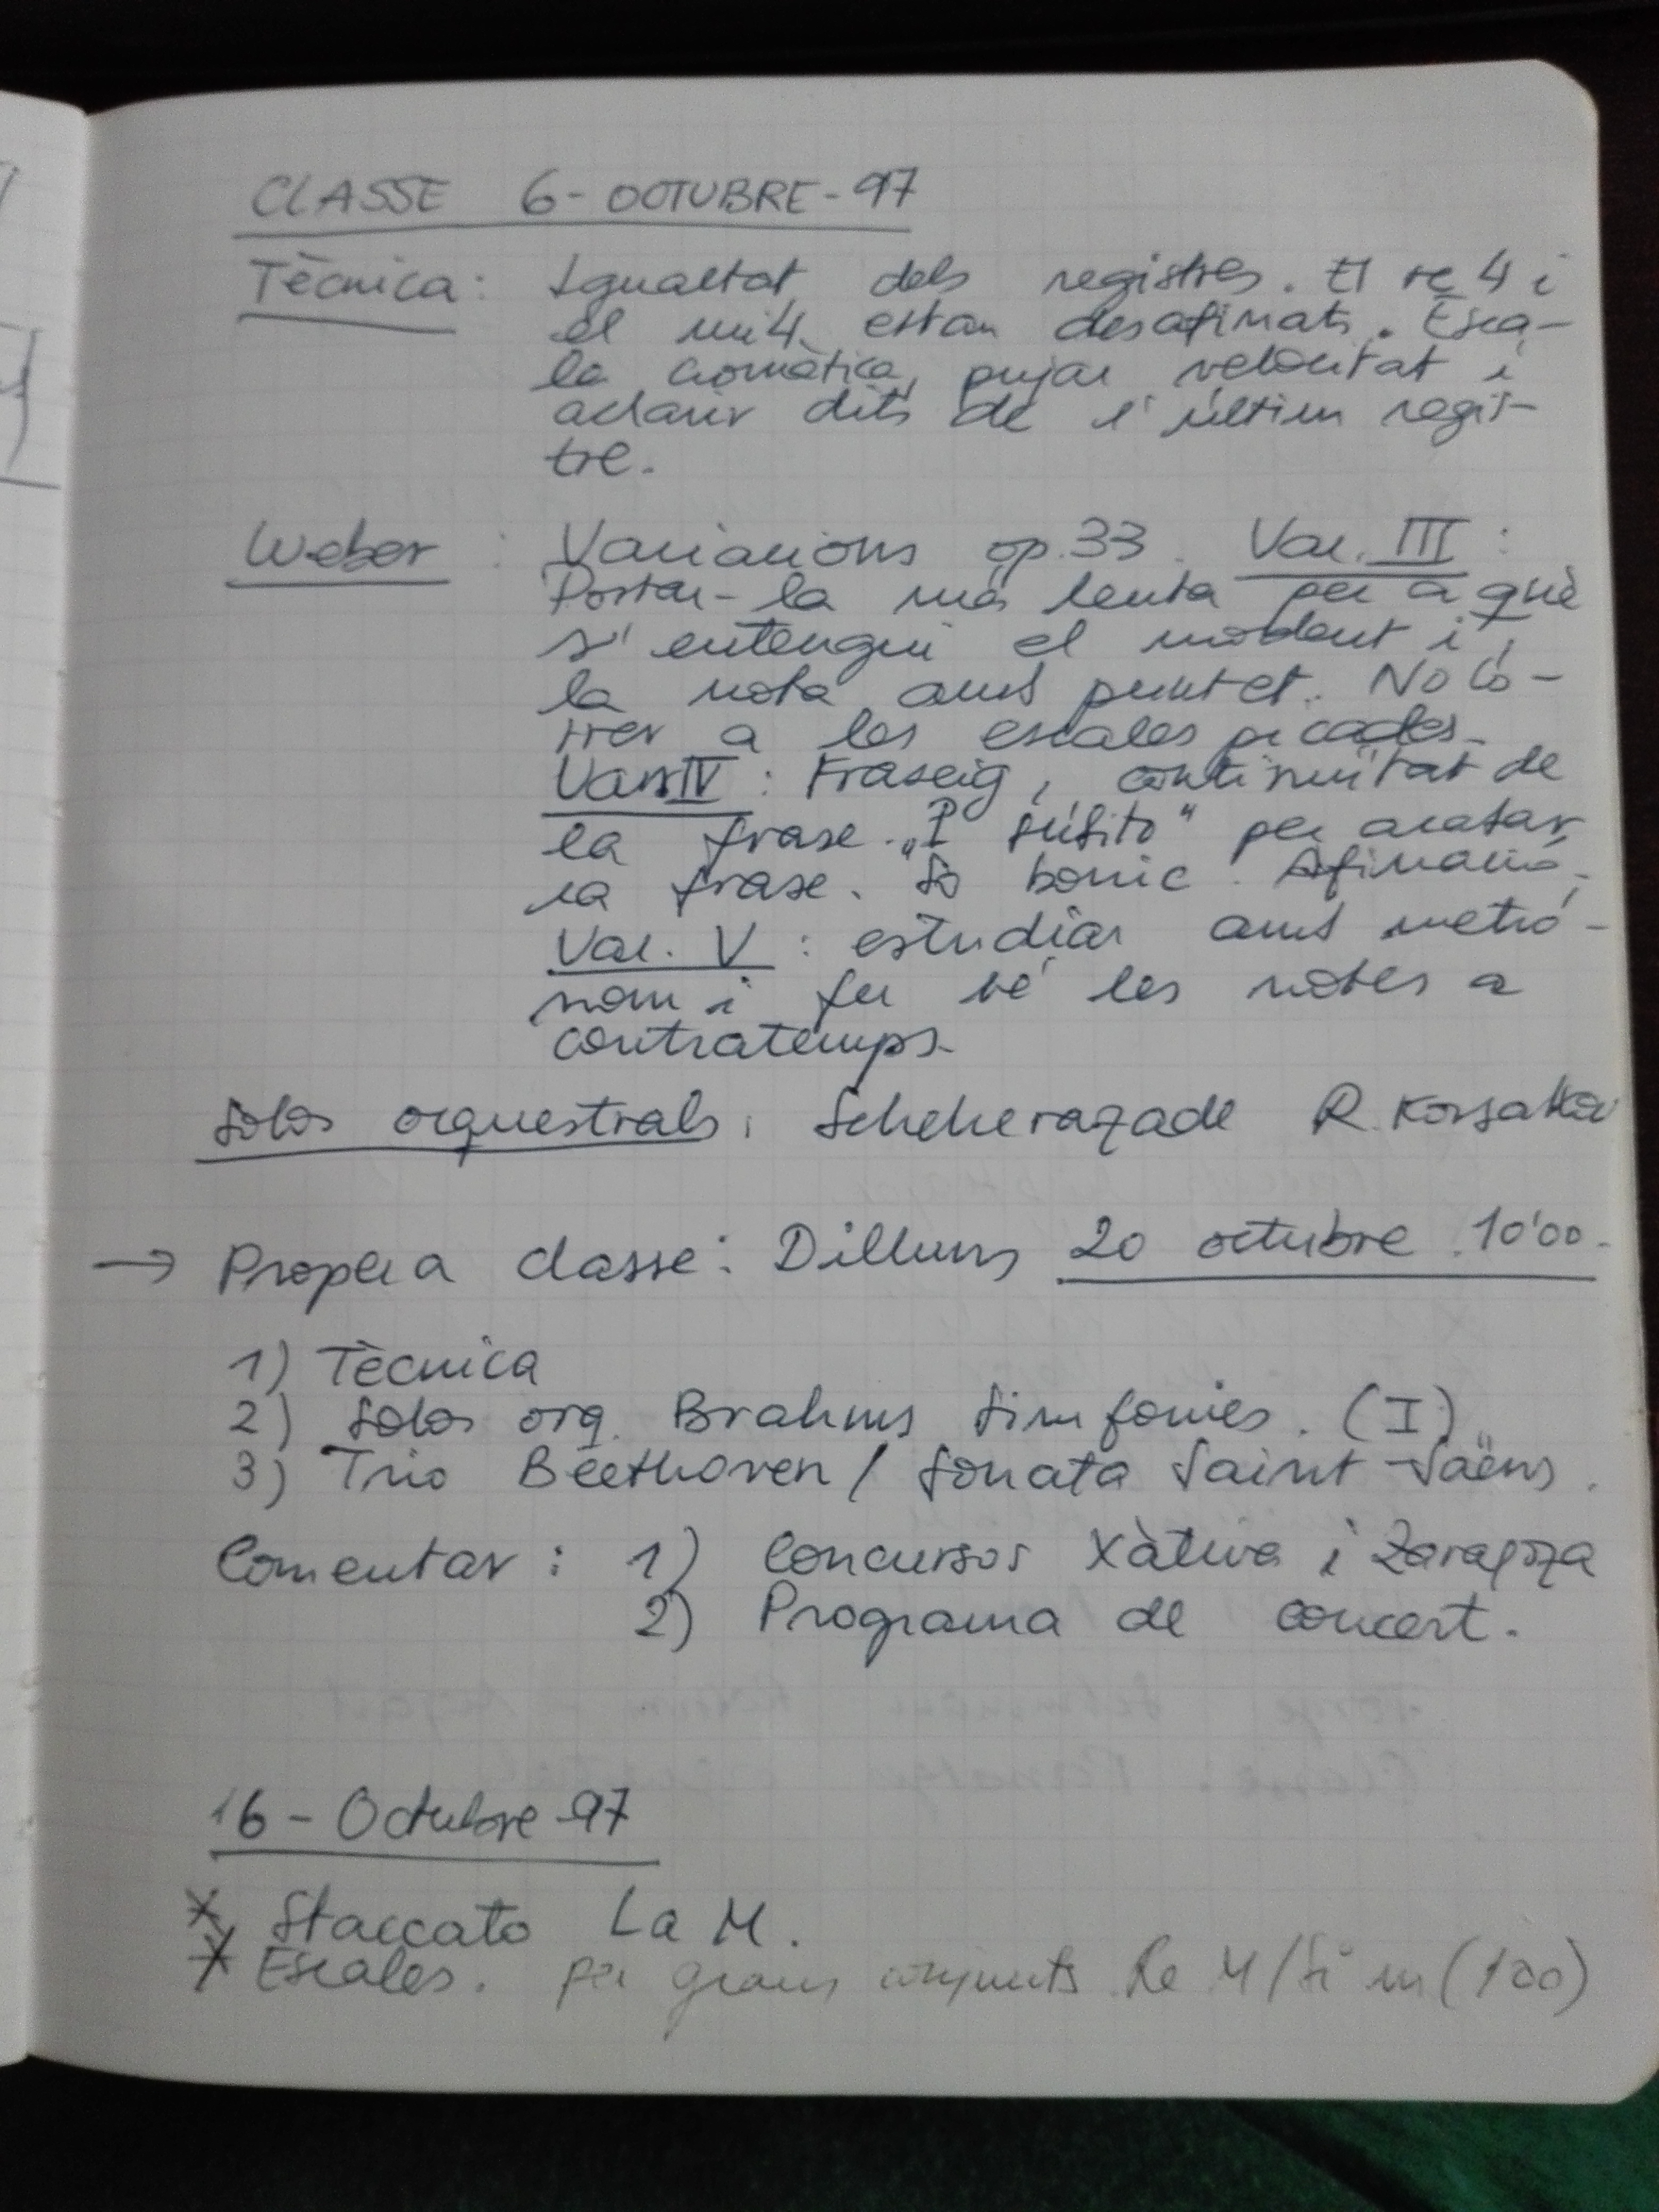 CLASSE 6-OCTUBRE-97
Tècnica: Igualtat dels registres. El re 4 i
el mi4 estan desafinats. Esca-
la cromàtica, pujar velocitat i
aclarir dits de l'últim regis-
tre.
Weber: Variacions op.33. Var. III:
Portar-la més lenta per a què
s'entengui el mordent i
la nota amb puntet. No co-
rrer a les escales picades.
Var. IV: Fraseig, continuïtat de
la frase. "P súbito" per acabar
la frase. So bonic. Afinació.
Var. V: estudiar amb metrò-
nom i fer bé les notes a
contratemps.
Solos orquestrals: Scheherazade R. Korsakov
→ Propera classe: Dilluns 20 octubre 10'00.
1) Tècnica
2) Solos orq. Brahms Simfonies. (I)
3) Trio Beethoven / Sonata Saint-Saëns.
Comentar: 1) Concursos Xàtiva i Zaragoza
2) Programa de concert.
16-Octubre-97
* Staccato La M.
* Escales. per graus conjunts Re M/Si m (100)